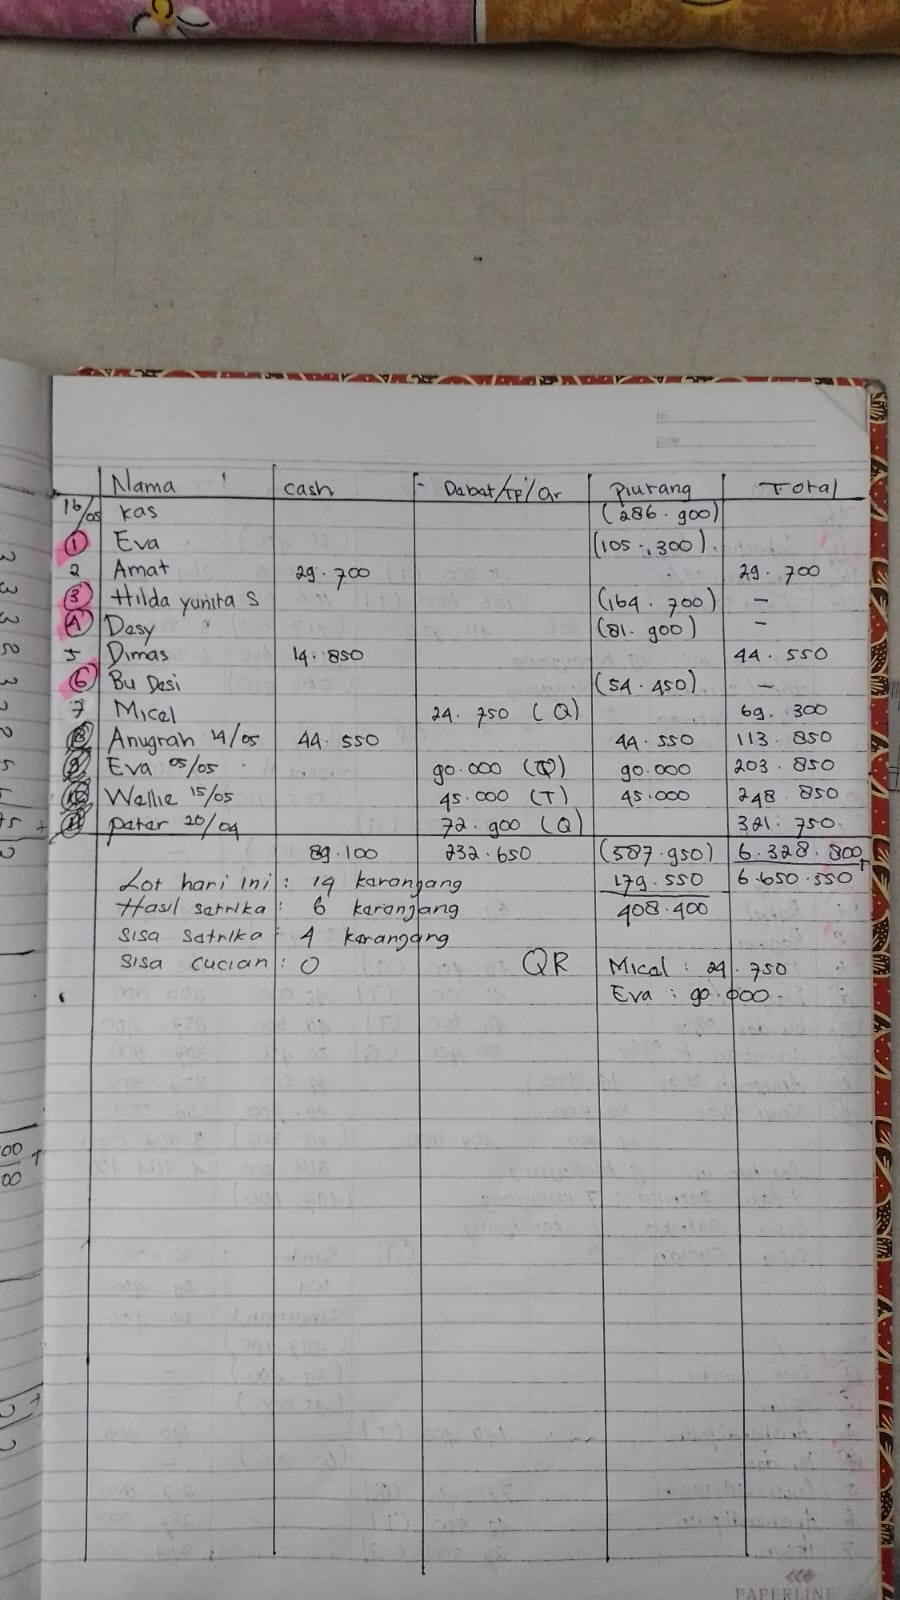 No.
Date
Nama cash Dabat/TP/Qr Piutang Total
16/05 kas (286.900)
1 Eva (105.300)
2 Amat 29.700 29.700
3 Hilda yunita S (164.700) -
4 Desy (81.900) -
5 Dimas 14.850 44.550
6 Bu Desi (54.450) -
7 Micel 24.750 (Q) 69.300
8 Anugrah 14/05 44.550 44.550 113.850
9 Eva 05/05 90.000 (Q) 90.000 203.850
10 Wellie 15/05 45.000 (T) 45.000 248.850
11 peter 20/04 72.900 (Q) 321.750
89.100 232.650 (587.950) 6.328.800
Lot hari ini : 14 karangang 179.550 6.650.550
Hasil satrika : 6 karangang 408.400
Sisa satrika : 4 karangang
Sisa cucian : 0 QR Mical : 24.750
Eva : 90.000
PAPERLINE